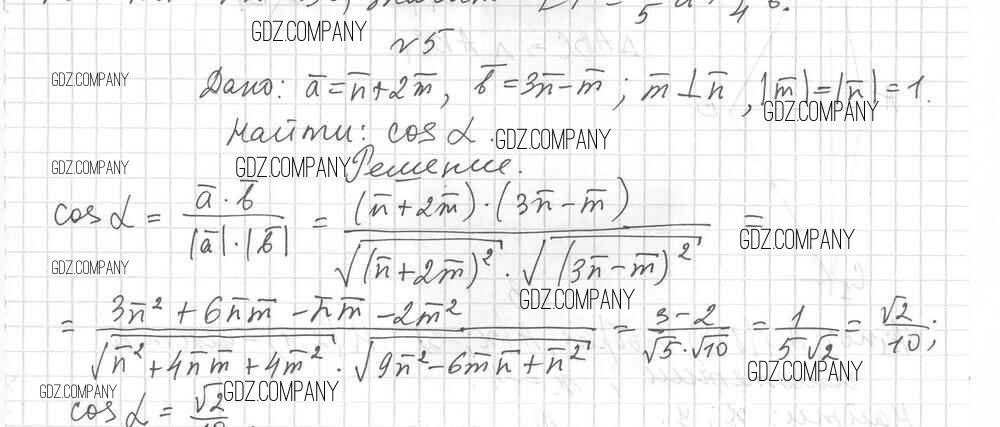 5 4 б.
GDZ.COMPANY
№5
GDZ.COMPANY
Дано: a̅ = n̅ + 2m̅, b̅ = 3n̅ − m̅; m̅ ⊥ n̅, |m̅| = |n̅| = 1.
GDZ.COMPANY
Найти: cos α.
GDZ.COMPANY
GDZ.COMPANY GDZ.COMPANY
Решение.
cos α = (a̅ · b̅) / (|a̅| · |b̅|) = ((n̅ + 2m̅) · (3n̅ − m̅)) / (√(n̅ + 2m̅)² · √(3n̅ − m̅)²) =
GDZ.COMPANY
GDZ.COMPANY
GDZ.COMPANY
= (3n̅² + 6n̅m̅ − n̅m̅ − 2m̅²) / (√(n̅² + 4n̅m̅ + 4m̅²) · √(9n̅² − 6m̅n̅ + n̅²)) = (3 − 2) / (√5 · √10) = 1 / (5√2) = √2 / 10;
GDZ.COMPANY
GDZ.COMPANY GDZ.COMPANY
cos α = √2 / 10.